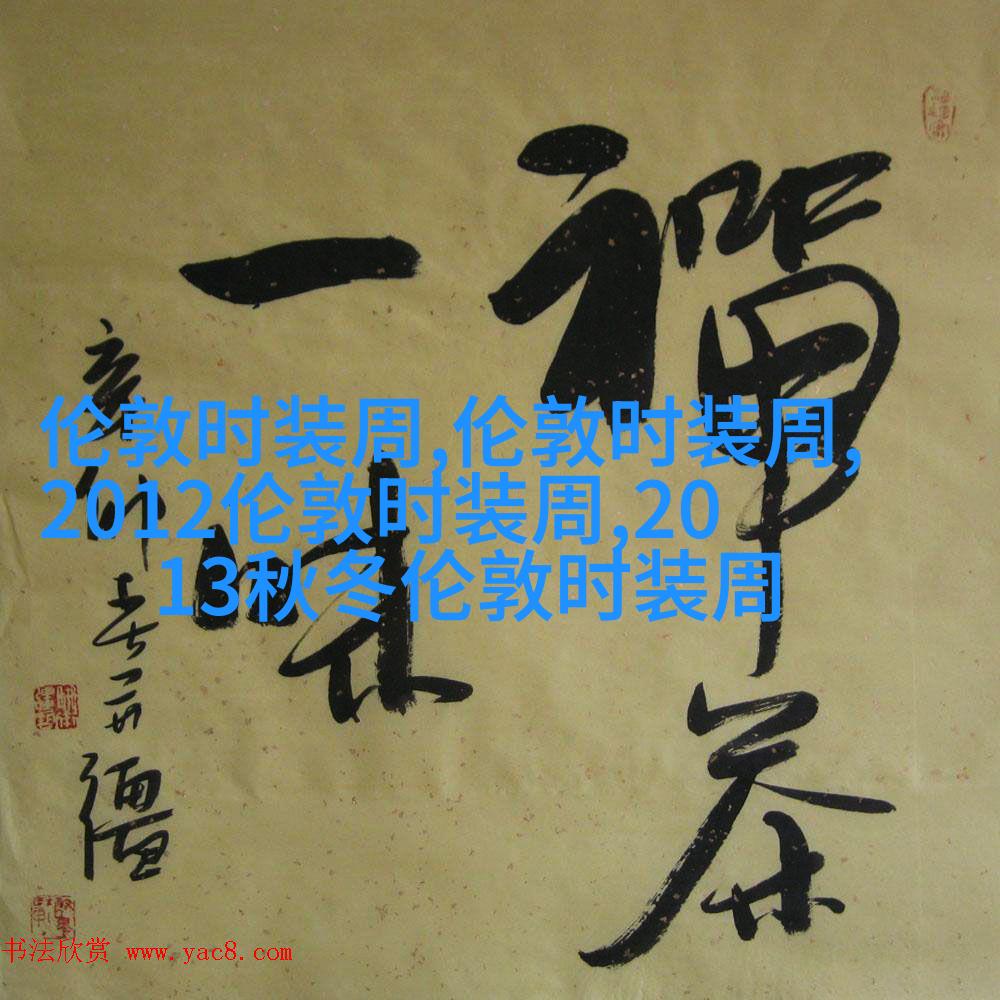 禅茶
一味
辛卯春一丹
伦敦时装周,伦敦时装周,
2012伦敦时装周,20
13秋冬伦敦时装周
书法欣赏 www.yac8.com